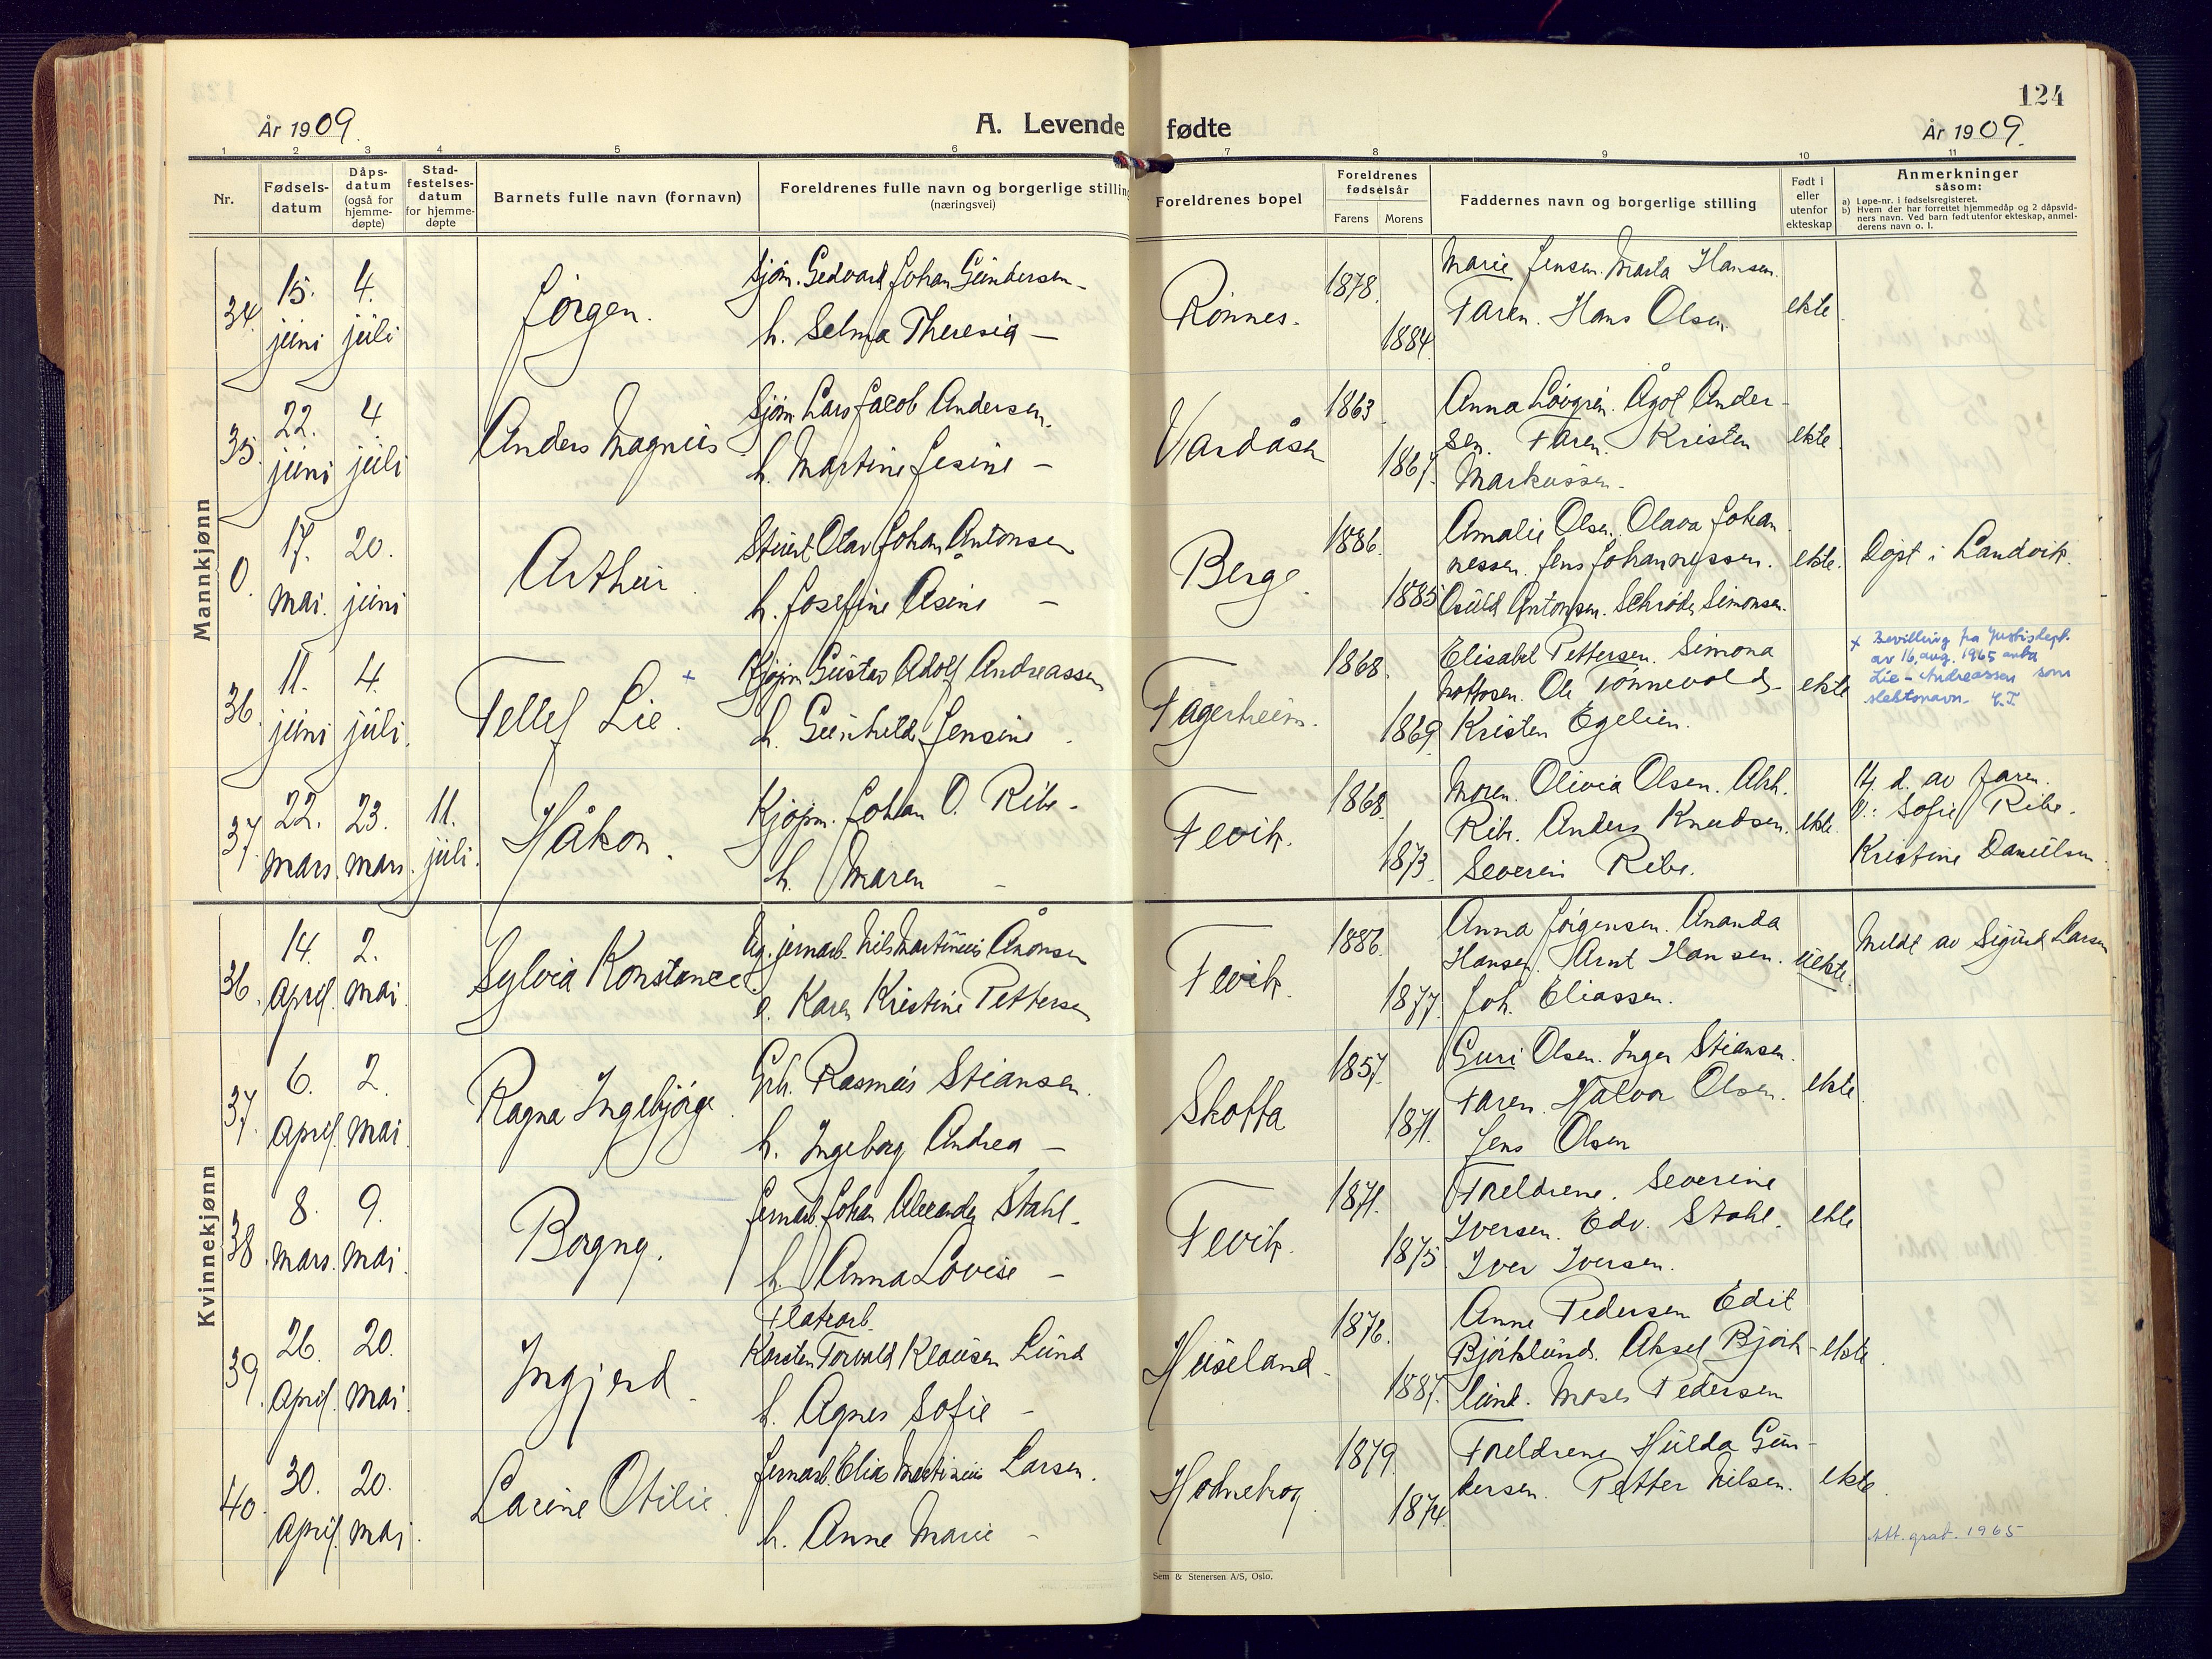 124
År 1909.
A. Levende fødte
År 1909.
1 2 3 4 5 6 7 8 9 10 11
Nr.
Fødselsdatum
Dåpsdatum (også for hjemmedøpte)
Stadfestelsesdatum for hjemmedøpte
Barnets fulle navn (fornavn)
Foreldrenes fulle navn og borgerlige stilling
(næringsvei)
Foreldrenes bopel
Foreldrenes fødselsår
Farens Morens
Faddernes navn og borgerlige stilling
Født i eller utenfor ekteskap
Anmerkninger
såsom:
a) Løpe-nr. i fødselsregisteret.
b) Hvem der har forrettet hjemmedåp og 2 dåpsvidners navn. Ved barn født utenfor ekteskap, anmelderens navn o. l.
Mannkjønn
34. 15. juni 4. juli
Jörgen.
Sjöm. Gedvard Johan Gundersen -
h. Selma Theresia -
Rönnes.
1878. 1884.
Marie Jensen. Marta Hansen.
Faren. Hans Olsen
ekte
35. 22. juni 4. juli
Anders Magnus
Sjöm. Lars Jacob Andersen.
h. Martine Jesine -
Vardåsen
1863. 1867.
Anna Lövgren. Ågot Ander-
sen. Faren. Kristen
Markussen.
ekte.
0. 17. mai. 20. juni
Arthur
Olav Johan Antonsen
h. Josefine Åsine -
Berge.
1886. 1885
Amalie Olsen. Olava Johan
nessen. Jens Johannessen.
Osuld Antonsen. Schröder Simonsen.
ekte.
Döpt i Landvik.
36. 11. juni 4. juli.
Tellef Lie. +
Kjöpm. Gustav Adolf Andreassen
h. Gunhild Jensine -
Fagerheim.
1868. 1869
Elisabet Pettersen. Simona
Mottosen. Ole Tönnevold -
Kristen Egelien.
ekte
+ Bevilling fra Justisdept.
av 16. aug. 1965 anta
Lie-Andreassen som
slektsnavn. E.T.
37. 22. mars. 23. mars. 11. juli.
Håkon.
Kjöpm. Johan O. Ribe -
h. Maren -
Fevik.
1868. 1873.
Moren. Olivia Olsen. Abh.
Ribe. Anders Knudsen.
Severin Ribe.
ekte.
Hj. d. av faren.
V.: Sofie Ribe.
Kristine Danielsen.
Kvinnekjønn
36. 14. April. 2. mai.
Sylvia Konstance
Ug. jernarb. Nils Martinius Ånonsen
p. Karen Kristine Pettersen
Fevik.
1886. 1877.
Anna Jörgensen. Ananda
Hansen. Arnt Hansen.
Joh. Eliassen.
uekte.
Meldt av Sigurd Larsen
37. 6. April 2. mai.
Ragna Ingebjörg.
Grb. Rasmus Stiansen.
h. Ingeborg Andrea -
Skotta
1857. 1871.
Guri Olsen. Inger Stiansen.
Faren. Halvor Olsen.
Jens Olsen
ekte.
38 8. mars. 9. mai.
Borgny.
Jernarb. Johan Alexander Stahl -
h. Anna Lovise -
Fevik.
1871. 1875
Foreldrene. Severine
Iversen. Edv. Stahl.
Iver Iversen.
ekte
39. 26. April. 20. mai.
Ingjerd.
Platearb.
Karsten Torvald Klausen Lund
h. Agnes Sofie -
Huseland.
1876. 1887.
Anne Pedersen Edit
Björklund. Aksel Björk -
lund. Moses Pedersen
ekte.
40. 30. April. 20. mai.
Larine Otilie.
Jernarb. Elias Martinius Larsen.
h. Anne Marie -
Holmekrog.
1879. 1874.
Foreldrene Hulda Gun-
dersen. Petter Nilsen.
ekte.
Att. grat. 1965
Sem & Stenersen A/S, Oslo.